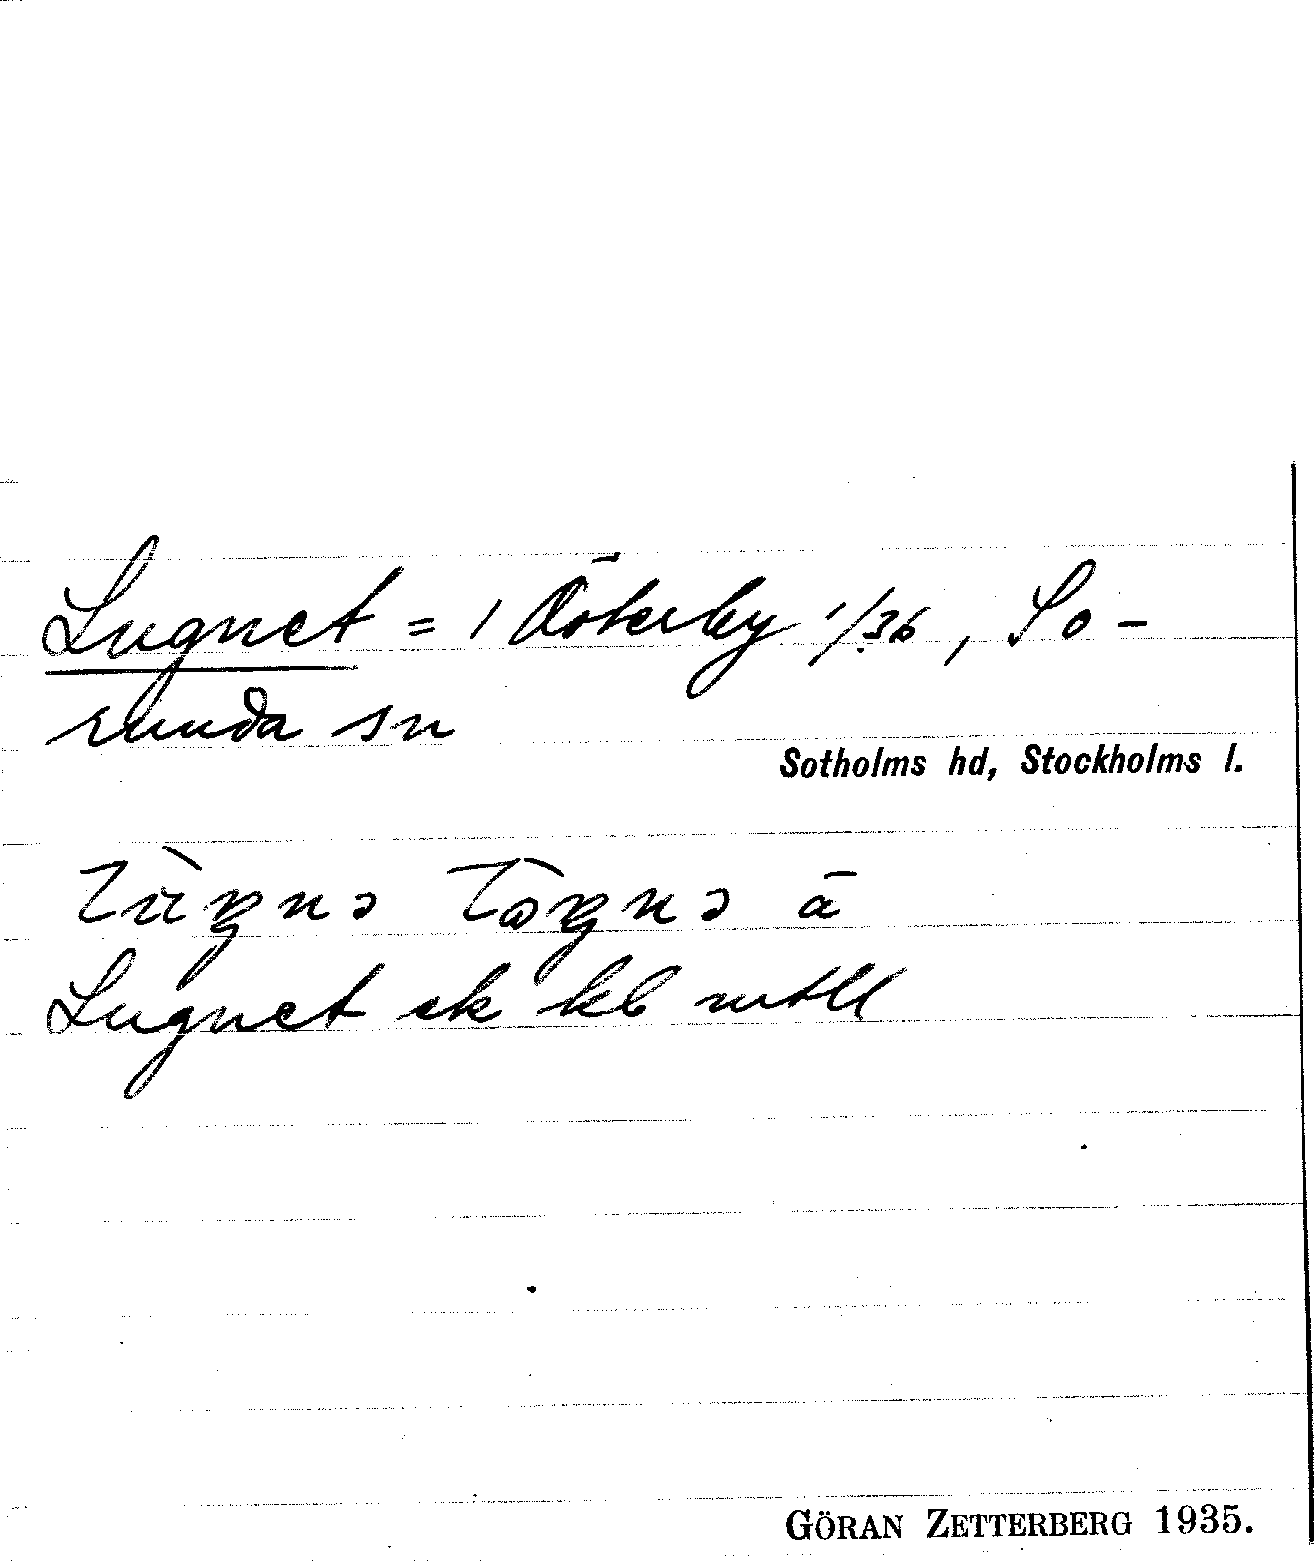 Lugnet = 1 Österby 1/36, So-
runda sn
Sotholms hd, Stockholms l.
ā
Lugnet ek kb mtll
GÖRAN ZETTERBERG 1935.